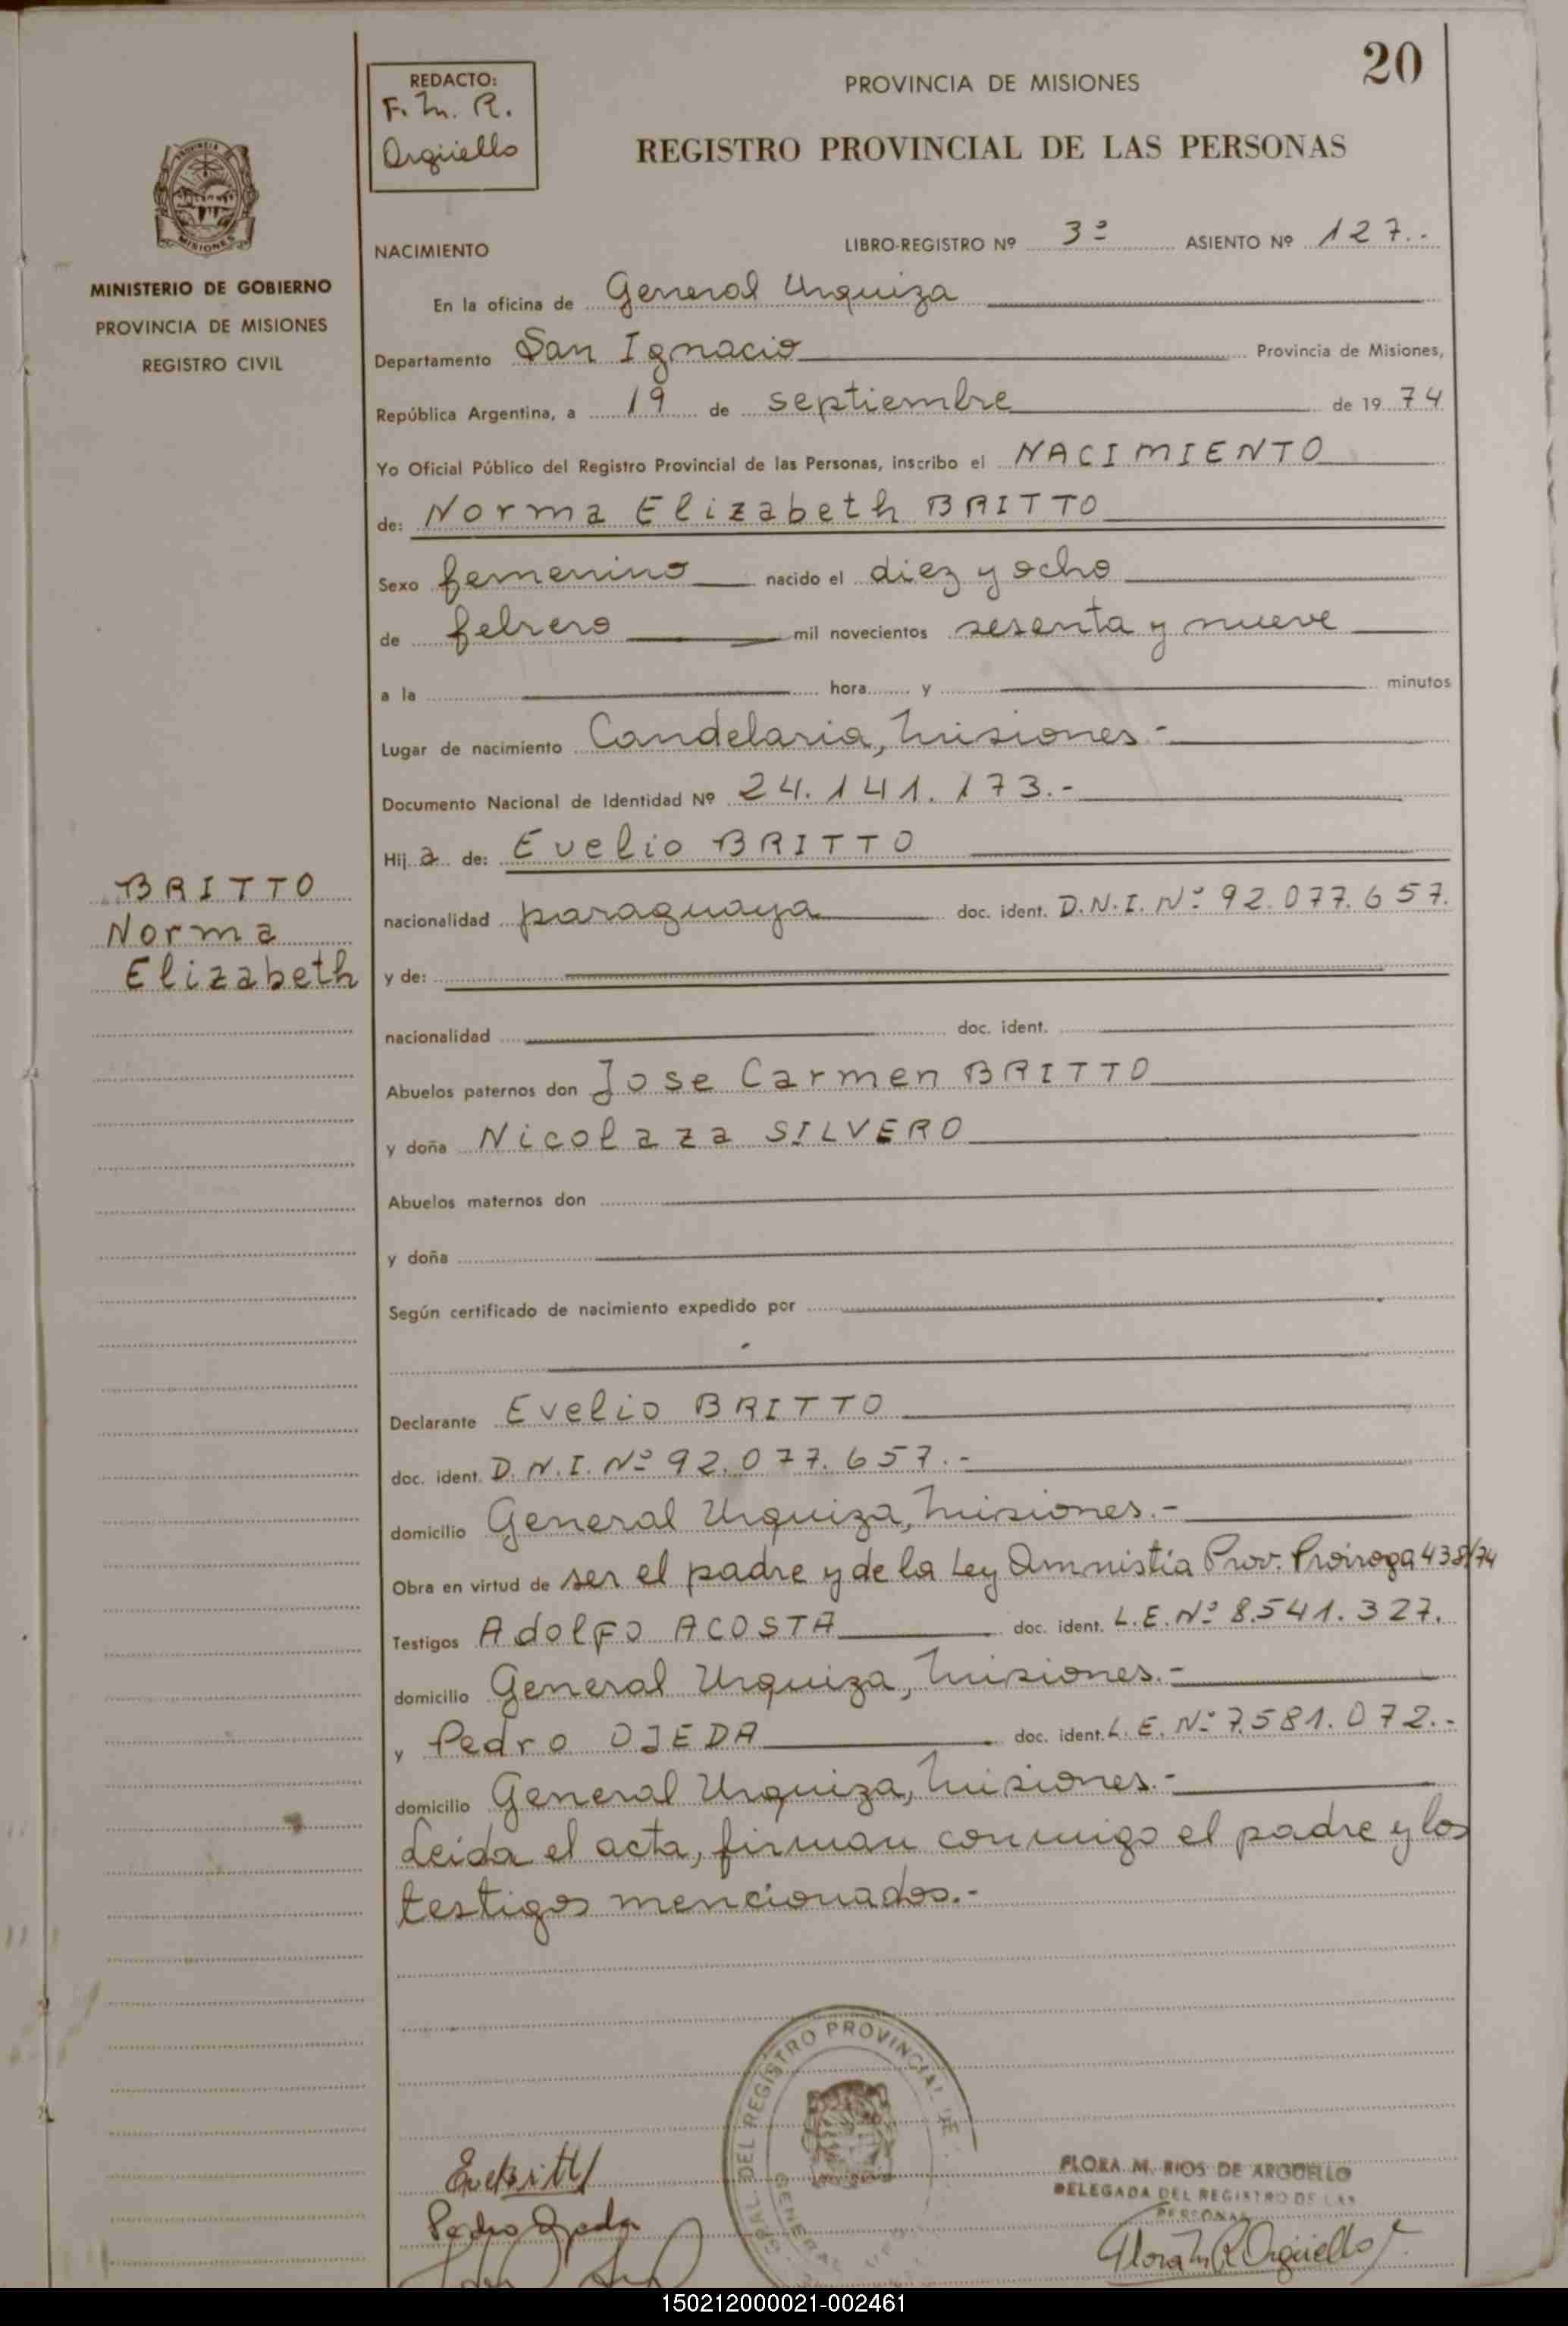 20
REDACTO:
F. M. R.
Argüello
PROVINCIA DE MISIONES
REGISTRO PROVINCIAL DE LAS PERSONAS
MISIONES
MINISTERIO DE GOBIERNO
PROVINCIA DE MISIONES
REGISTRO CIVIL
NACIMIENTO LIBRO-REGISTRO Nº 3º ASIENTO Nº 127.-
En la oficina de General Urquiza
Departamento San Ignacio Provincia de Misiones,
República Argentina, a 19 de septiembre de 19 74
Yo Oficial Público del Registro Provincial de las Personas, inscribo el NACIMIENTO
de: Norma Elizabeth BRITTO
Sexo femenino nacido el diez y ocho
de febrero mil novecientos sesenta y nueve
a la hora y minutos
Lugar de nacimiento Candelaria, Misiones.-
Documento Nacional de Identidad Nº 24.141.173.-
Hij a de: Evelio BRITTO
BRITTO
Norma
Elizabeth
nacionalidad paraguaya doc. ident. D.N.I. Nº 92.077.657.
y de:
nacionalidad doc. ident.
Abuelos paternos don Jose Carmen BRITTO
y doña Nicolaza SILVERO
Abuelos maternos don
y doña
Según certificado de nacimiento expedido por
Declarante Evelio BRITTO
doc. ident. D.N.I. Nº 92.077.657.-
domicilio General Urquiza, Misiones.-
Obra en virtud de ser el padre y de la Ley Amnistia Prov. 438/74
Testigos Adolfo ACOSTA doc. ident. L.E. Nº 8.541.327.
domicilio General Urquiza, Misiones.-
y Pedro OJEDA doc. ident. L.E. Nº 7.581.072.-
domicilio General Urquiza, Misiones.-
Leida el acta, firman conmigo el padre y los
testigos mencionados.-
DEL REGISTRO PROVINCIAL DE
GENERAL
FLORA M. RIOS DE ARGÜELLO
DELEGADA DEL REGISTRO DE LAS
PERSONAS
Pedro Ojeda
Flora M R Argüello
150212000021-002461